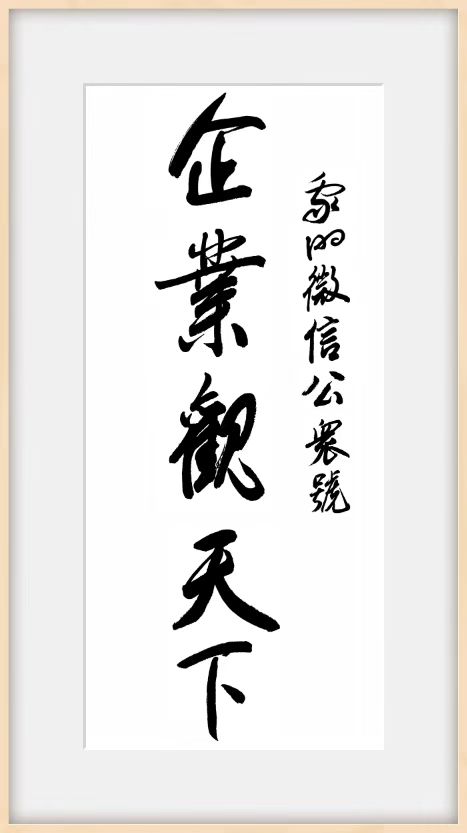 的微信公衆號
企業觀天下